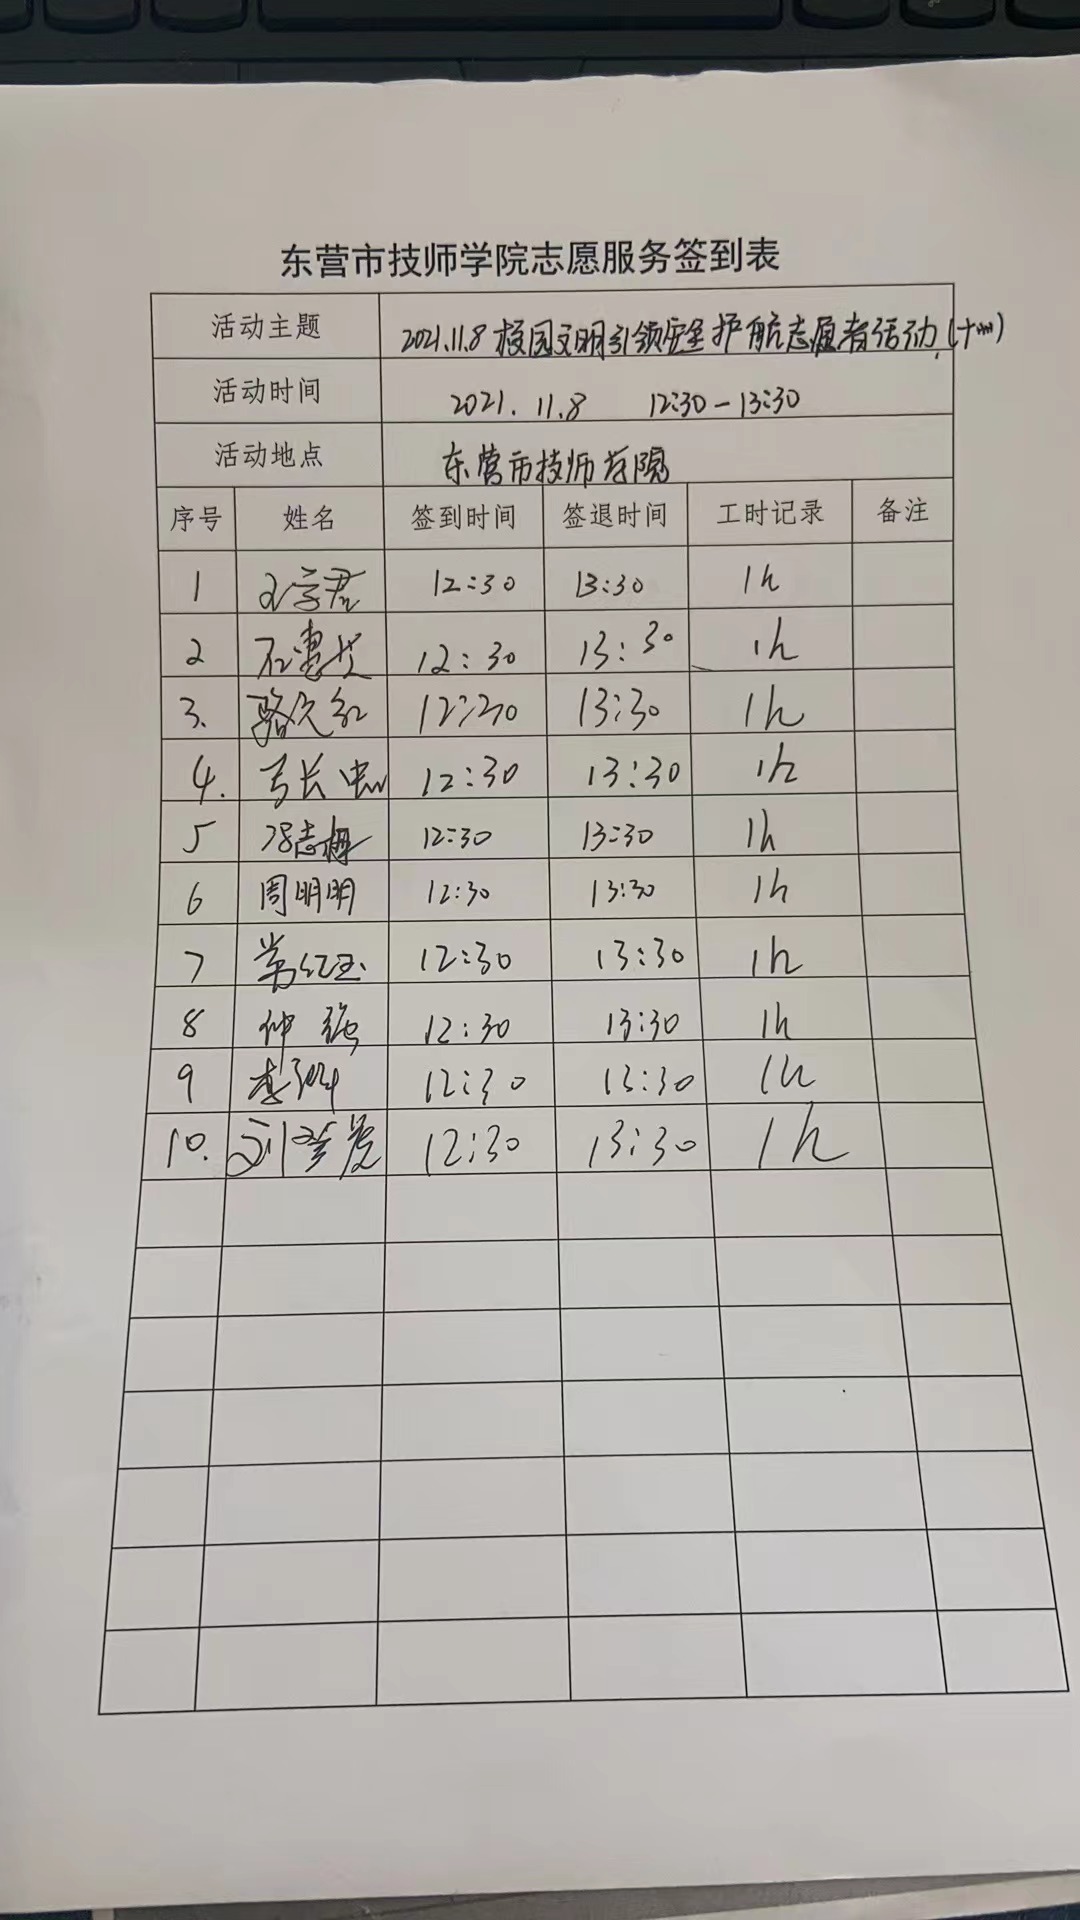 东营市技师学院志愿服务签到表
活动主题 2021.11.8 校园文明引领安全护航志愿者活动
活动时间 2021.11.8 12:30-13:30
活动地点 东营市技师学院
序号 姓名 签到时间 签退时间 工时记录 备注
1 12:30 13:30 1h
2 12:30 13:30 1h
3. 12:30 13:30 1h
4. 12:30 13:30 1h
5 冯志梅 12:30 13:30 1h
6 周明明 12:30 13:30 1h
7 12:30 13:30 1h
8 仲强 12:30 13:30 1h
9 12:30 13:30 1h
10. 12:30 13:30 1h